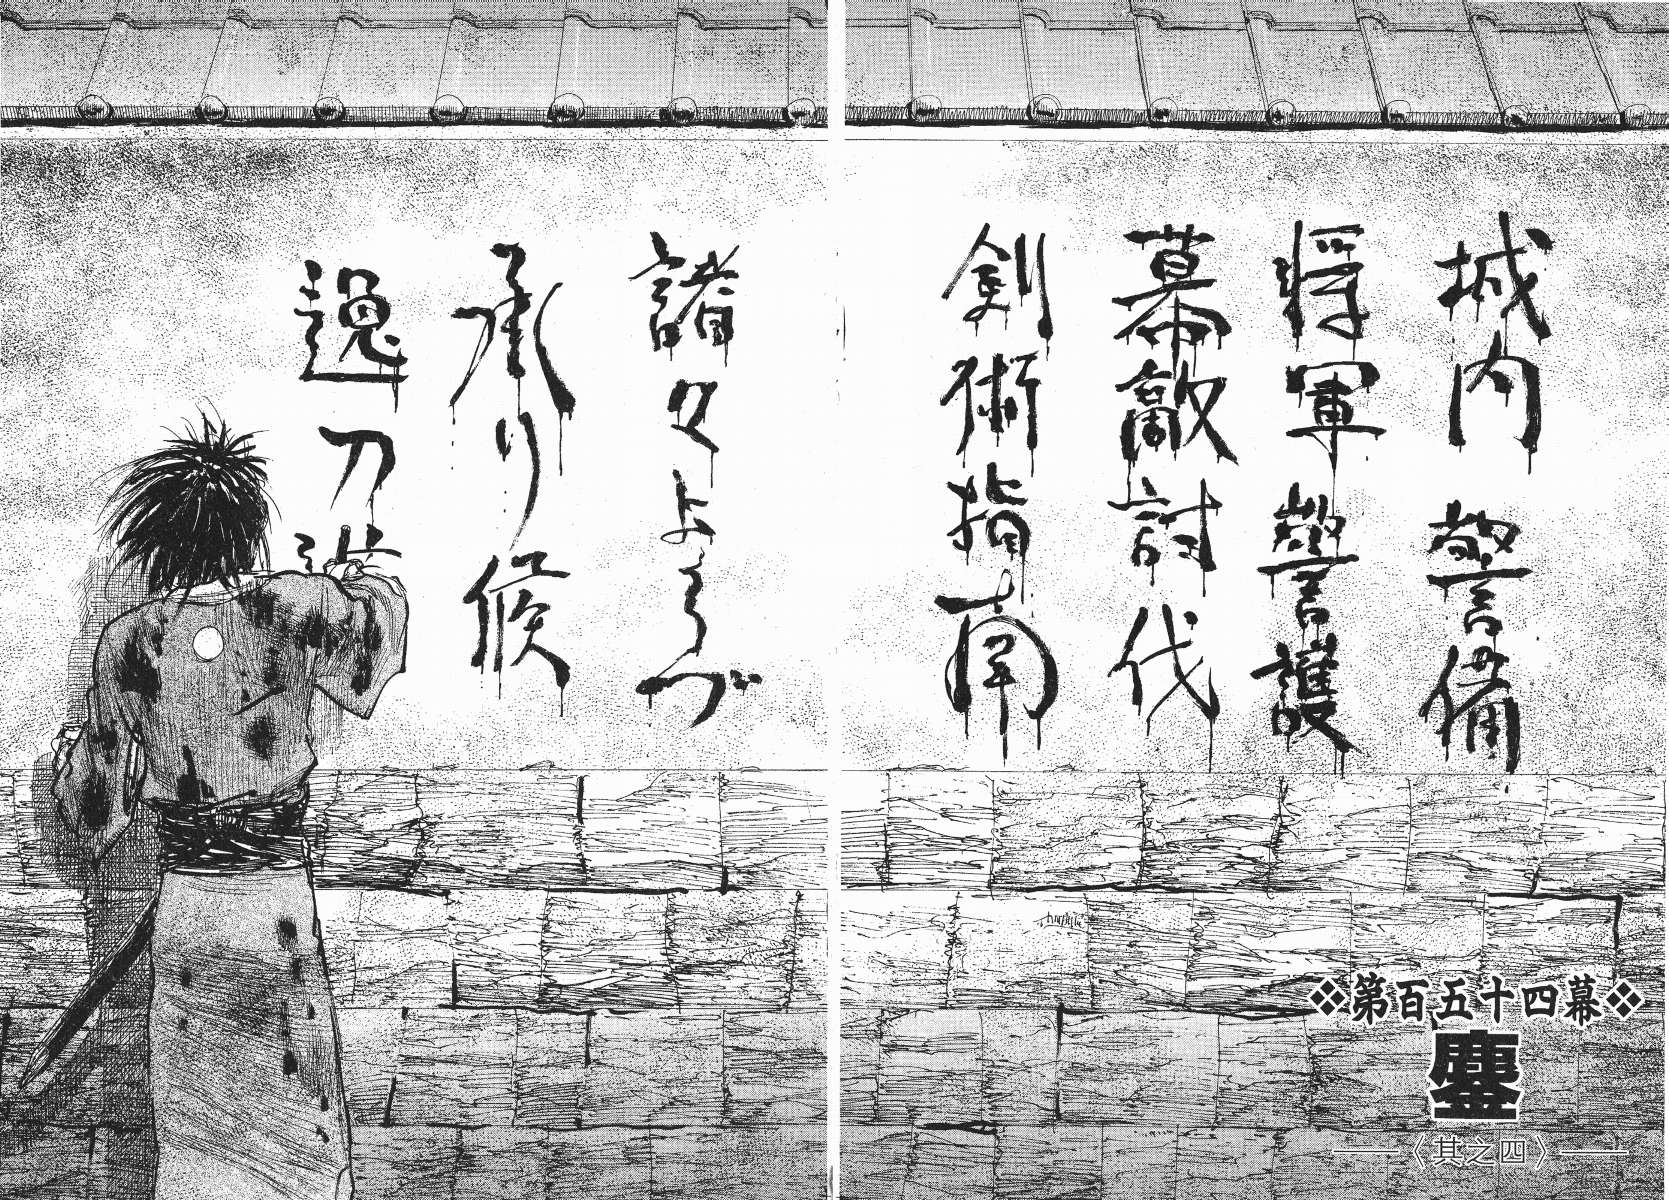 城内警備
将軍警護
幕敵討伐
剣術指南
諸々よろづ
承り候
逸刀
❖第百五十四幕❖
鏖
〈其之四〉